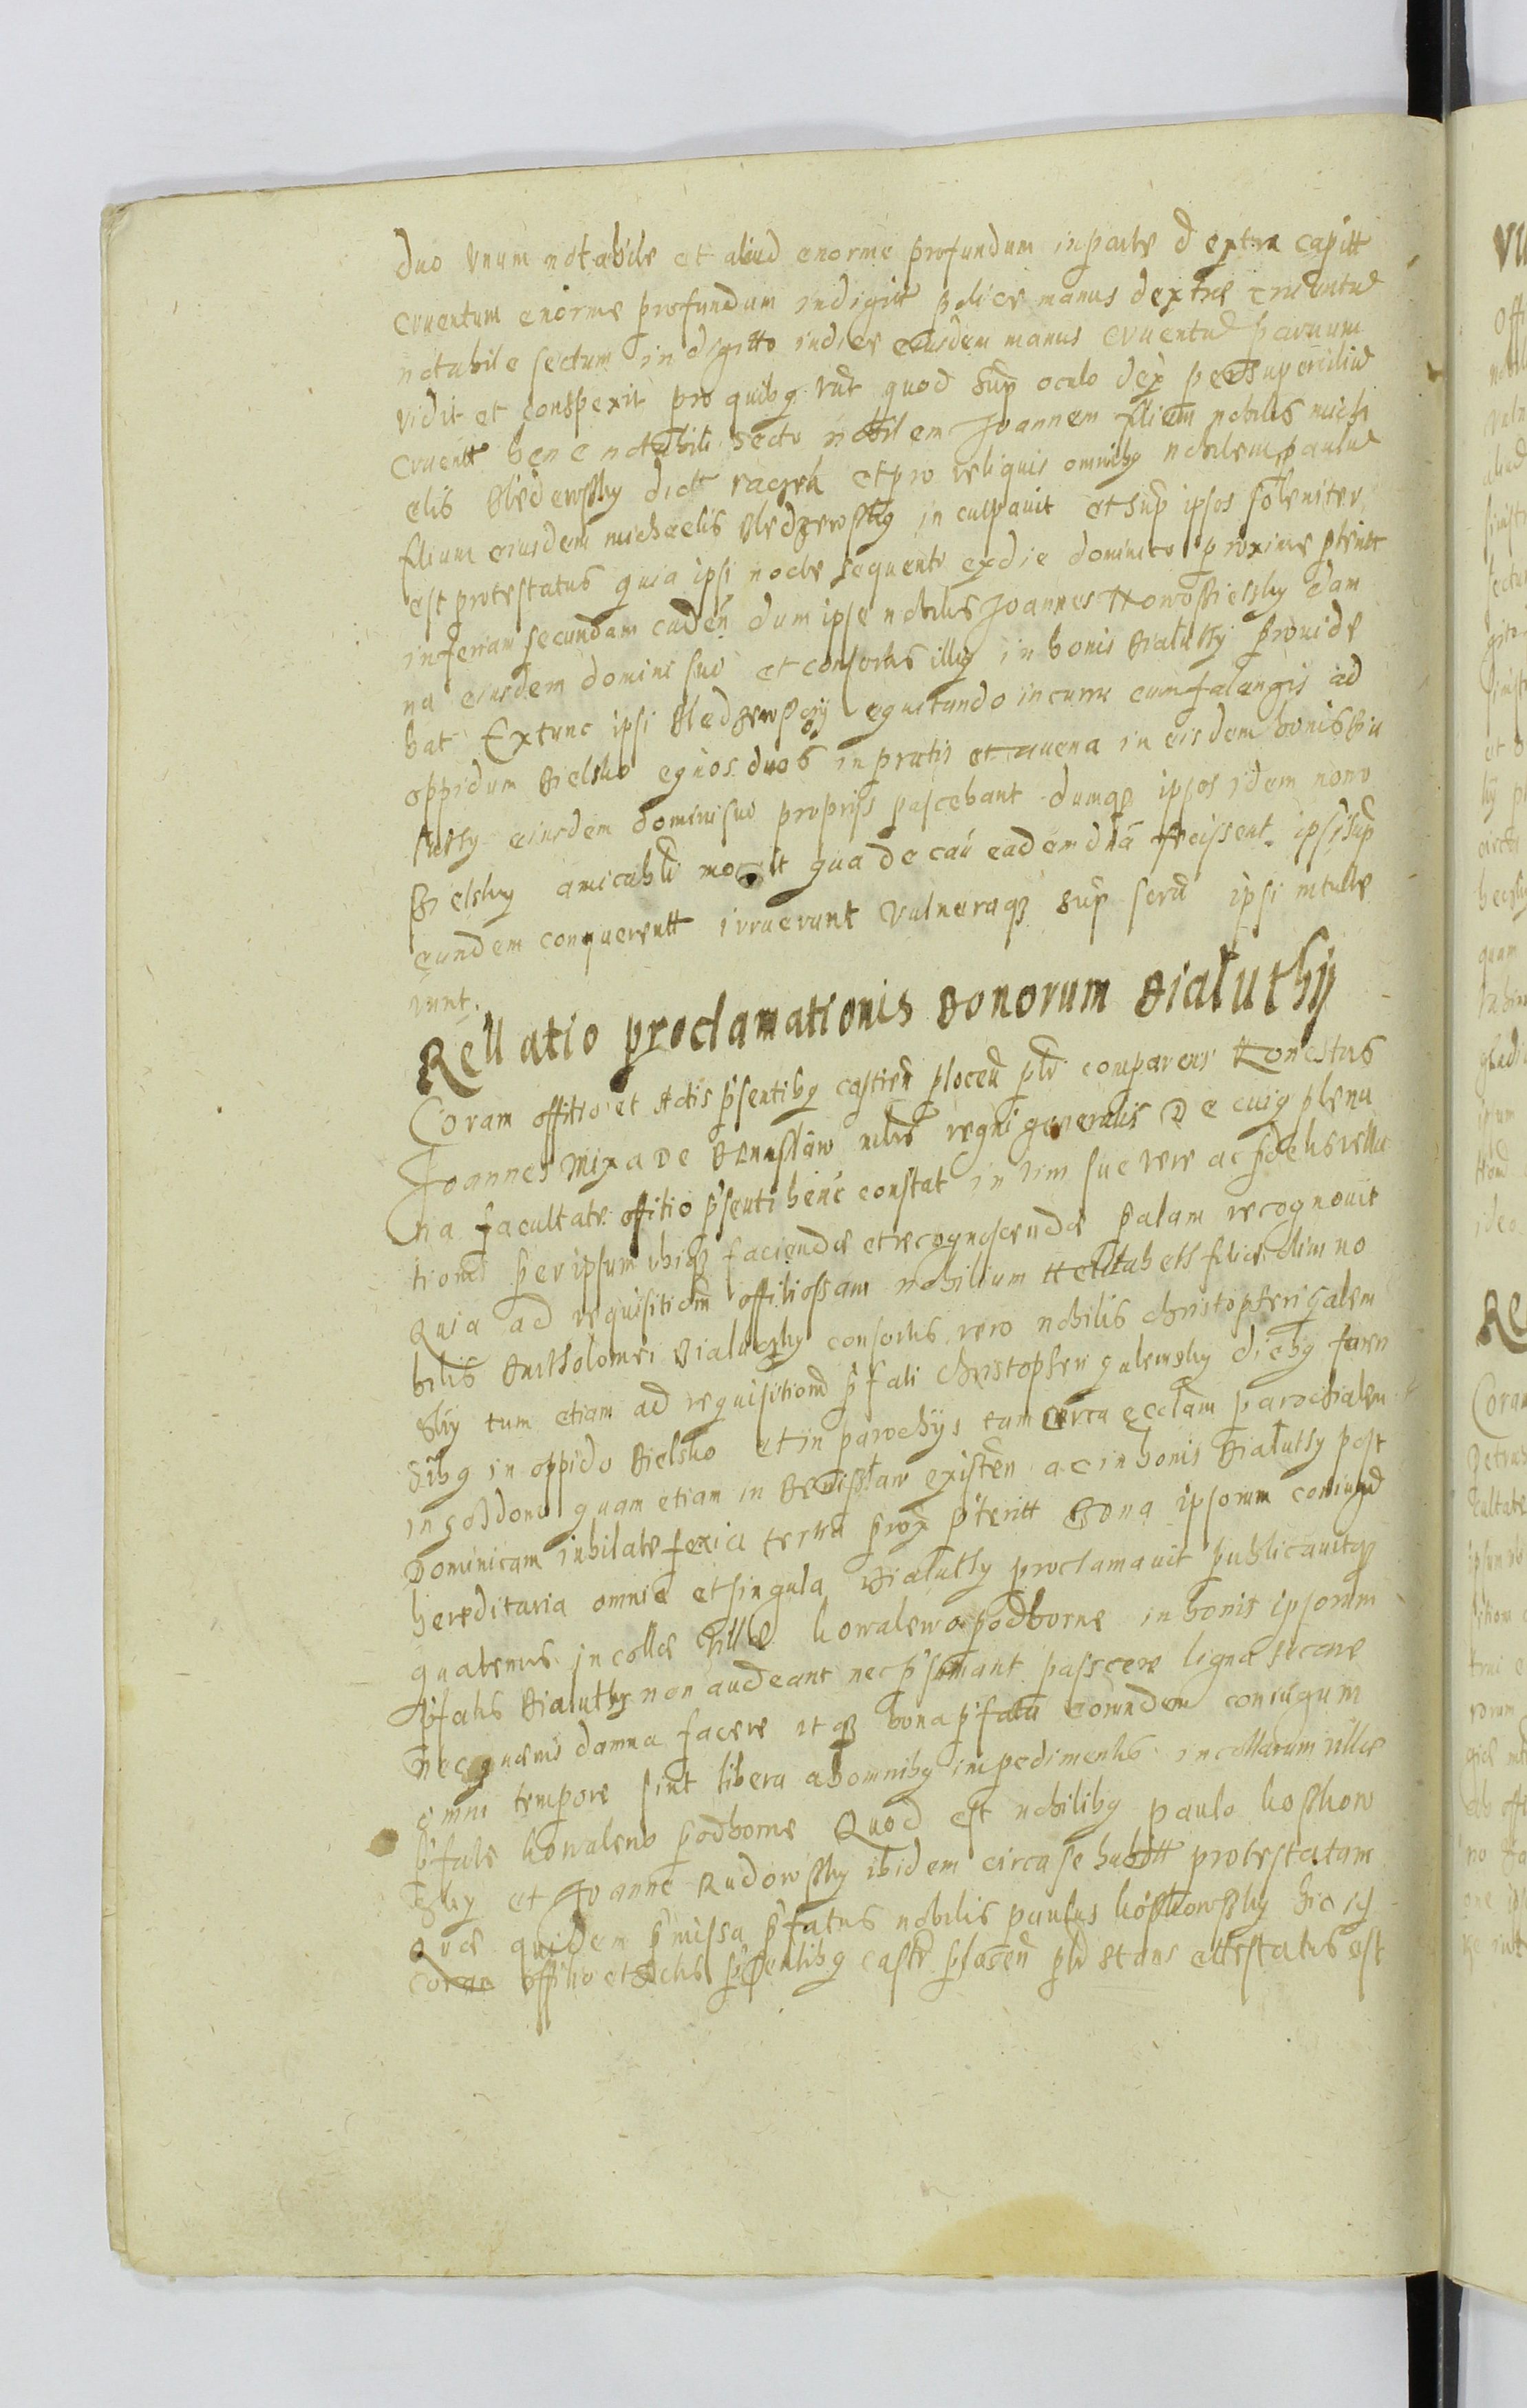 duo Vnum notabile et aliud enorme profundum in parte dextra capitt
cruentum enorme profundum in digitt police manus dextre cruentu
notabile sectum in digitto indice eiusdem manus cruentu paruum
vidit et conspexit pro quibg vnt quod sup oculo dex
cruentt bene notabili secto nobilem Joannem filium nobilis mich
elis Sledzewsky dict et pro reliquis omnibg nobilem paulu
filium eiusdem michaelis Sledzewsky inculpauit et sup ipsos soleniter
est protestatus quia ipsi nocte sequenti ex die dominico proxime pterit
in feriam secundam caden dum ipse nobilis Joannes Nowosielsky dam
na eiusdem domini sui et consortis illig in bonis Bialutky prouide
bat Extunc ipsi Sledzewsczy equitando in curru cum falangis ad
oppidum Bielsko equos duos in pratis et auena in eisdem bonis Bia
lutky eiusdem domini sui proprijs pascebant dumqz ipsos idem nowo
sielsky amicabli qua de cau eadem dna fecissent ipsi sup
eundem conquerentt irruerunt Vulneraqz sup scrū ipsi intule
runt.
Rellatio proclamationis Bonorum Bialuthij
Coram offitio et Actis psentibg castren plocen plr comparens Honestus
Joannes Mixa de Bennslaw mlris regni generalis De cuig plena
ria facultate offitio psenti bene constat in vim sue vere ac fidelis rella
tionis per ipsum vbiqz faciende et recognoscende palam recognouit
Quia ad requisitiom offitiossam nobilium Helizabeth filie olim no
bilis Bartholomei Bialuczky consortis vero nobilis christopheri Galem
sky tum etiam ad requisitiom pfati christopheri galemsky diebg foren
sibg in oppido Bielsko et in parochijs tam circa ecclam parochialem
in goldono quam etiam in existen ac in bonis Bialutky post
Dominicam iubilate feria tertia prox pteritt Bona ipsorum coniugu
hereditaria omnia et singula Bialutky proclamauit publicauitqz
quatenus incolle ville kowalewo podborne in bonis ipsorum
pfatis Bialuthy non audeant nec psumant passcere ligna secare
nec quamis damna facere itqz bona pfata eorundem coniugum
omni tempore sint libera ab omnibg impedimentis incollarum ville
pfate kowalewo podborne Quod est nobilibg paulo koskow
sky et Joanne Rudowsky ibidem circa se habitt protestatum
Que quidem pmissa pfatus nobilis paulus koskowsky hic is
coram offitio et Actis psentibg castr plocen plr stans attestatus est